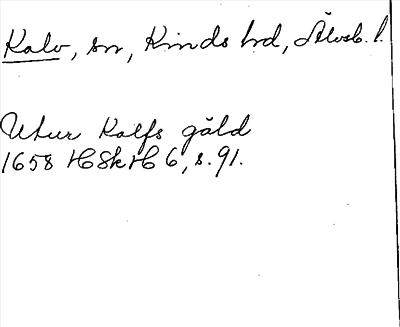 Kalv, sn, Kinds hd, Älvsb. l.
Utur Kalfs gäld
1658 HSkH 6, s. 91.